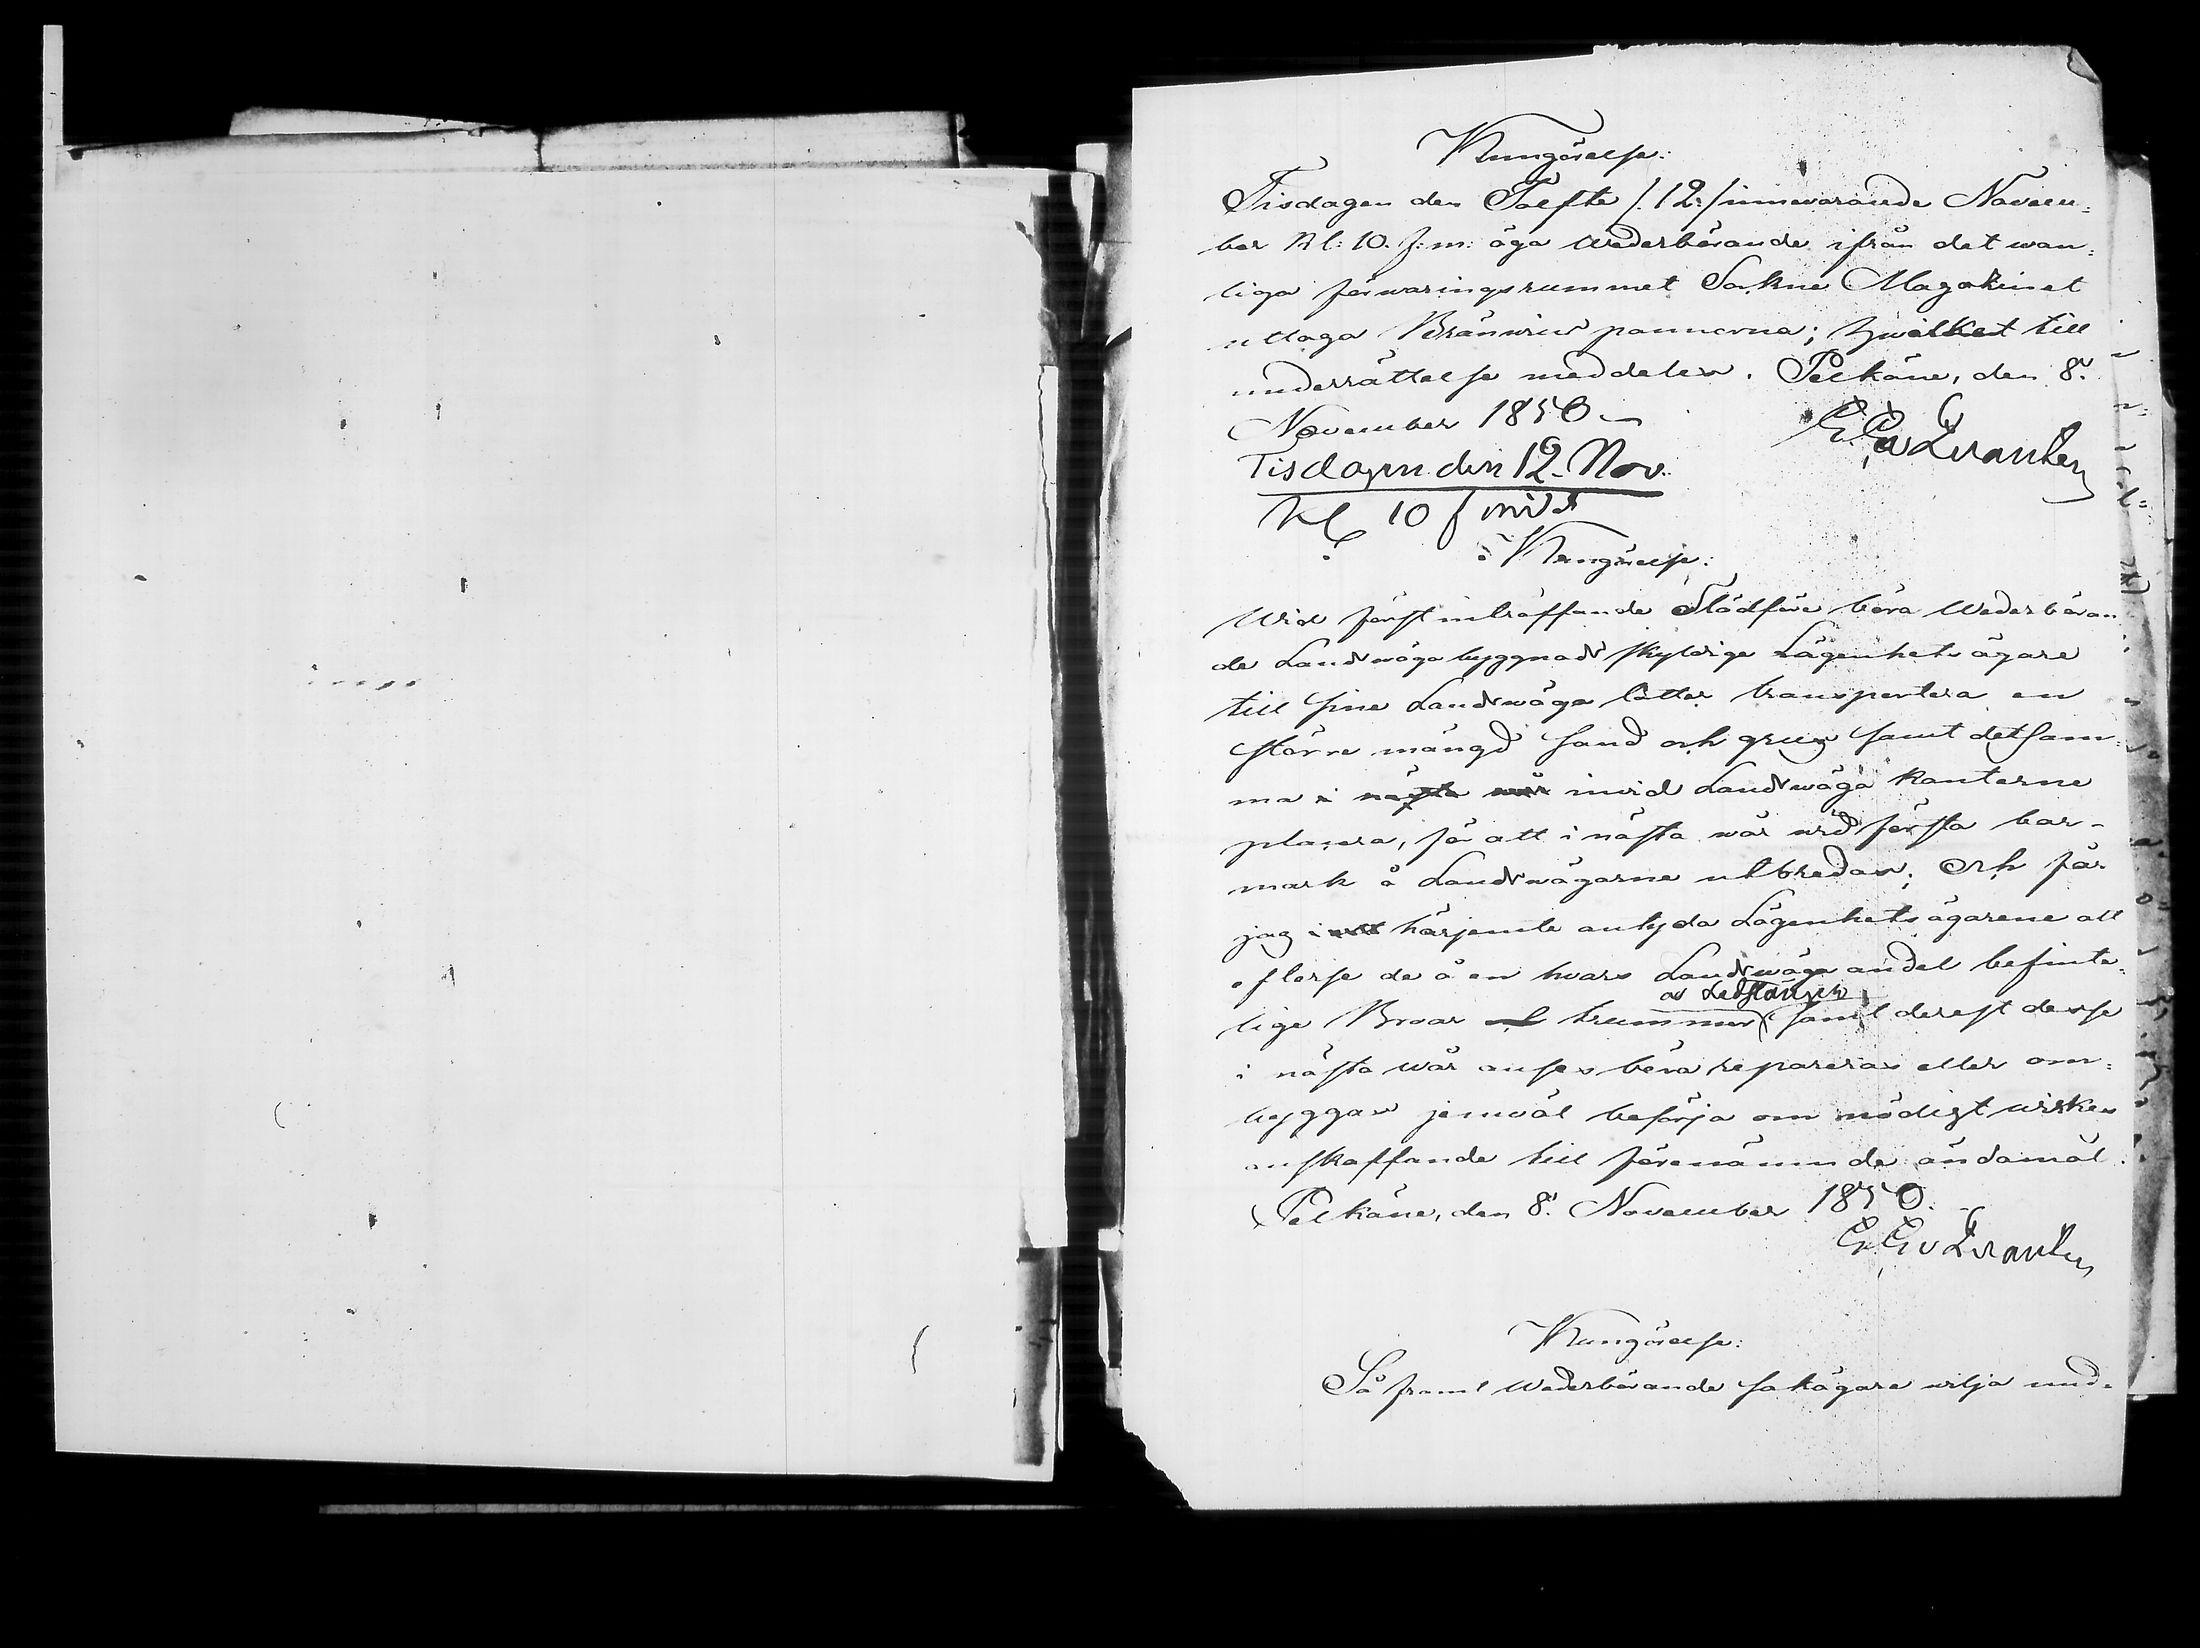 Kungörelse:
Tisdagen den Tolfte /:12:/ innevarande Novem:
ber Kl: 10. f:m: äga wederbörande ifrån det wan:
liga förwaringsrummet Sokne Magazinet
uttaga Bränwins pannorna; hwilket till
underrättelse meddelas. Pelkäne, den 8.
November 1850.
E. G. v Qvanten
Tisdagen den 12. Nov.
Kl 10 f midd
Kungörelse:
Wid först inträffande Slädföre böra Wederböran
de Landswägabyggnads skyldige Lägenhets ägare
till sine Landswäga lotter transportera en
större mängd sand och grus samt detsam:
ma i nästa wår invid Landswäga kanterne
placera, för att i nästa wår wid första bar-
mark å Landswägarne utbredas; och får
jag härjemte antyda Lägenhetsägarene att
efterse de å en hvars Landswäga andel befinte:
as Ledstänger
lige Broar trummor samt derest desse
i nästa wår anses böra repareras eller om:
byggas jemväl besörja om nödigt wirkes
anskaffande till förenämnde ändamål.
Pelkäne, den 8. November 1850.
E. G. v Qvanten
Kungörelse:
Så framt Wederbörande sakägare wilja und: